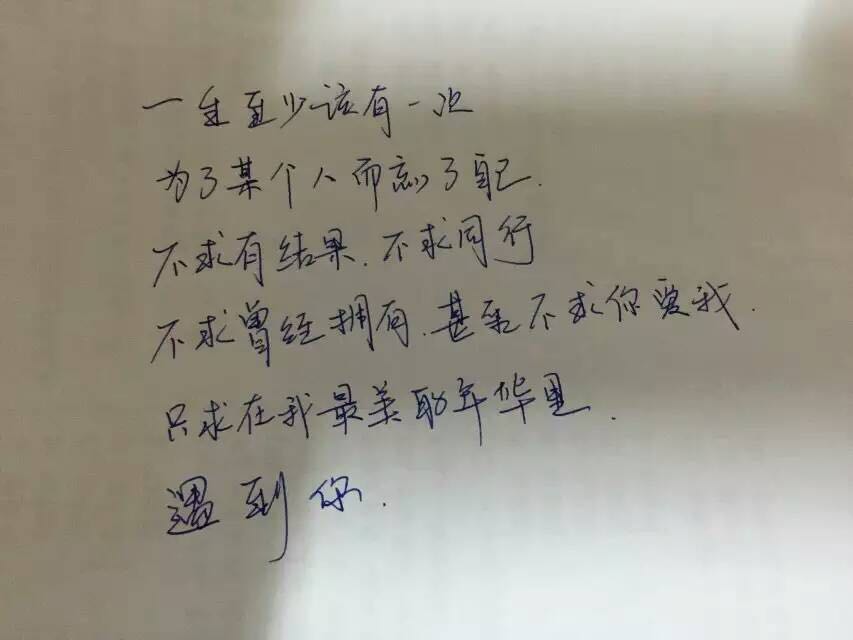 一生至少该有一次
为了某个人而忘了自己.
不求有结果.不求同行
不求曾经拥有.甚至不求你爱我.
只求在我最美的年华里.
遇到你.